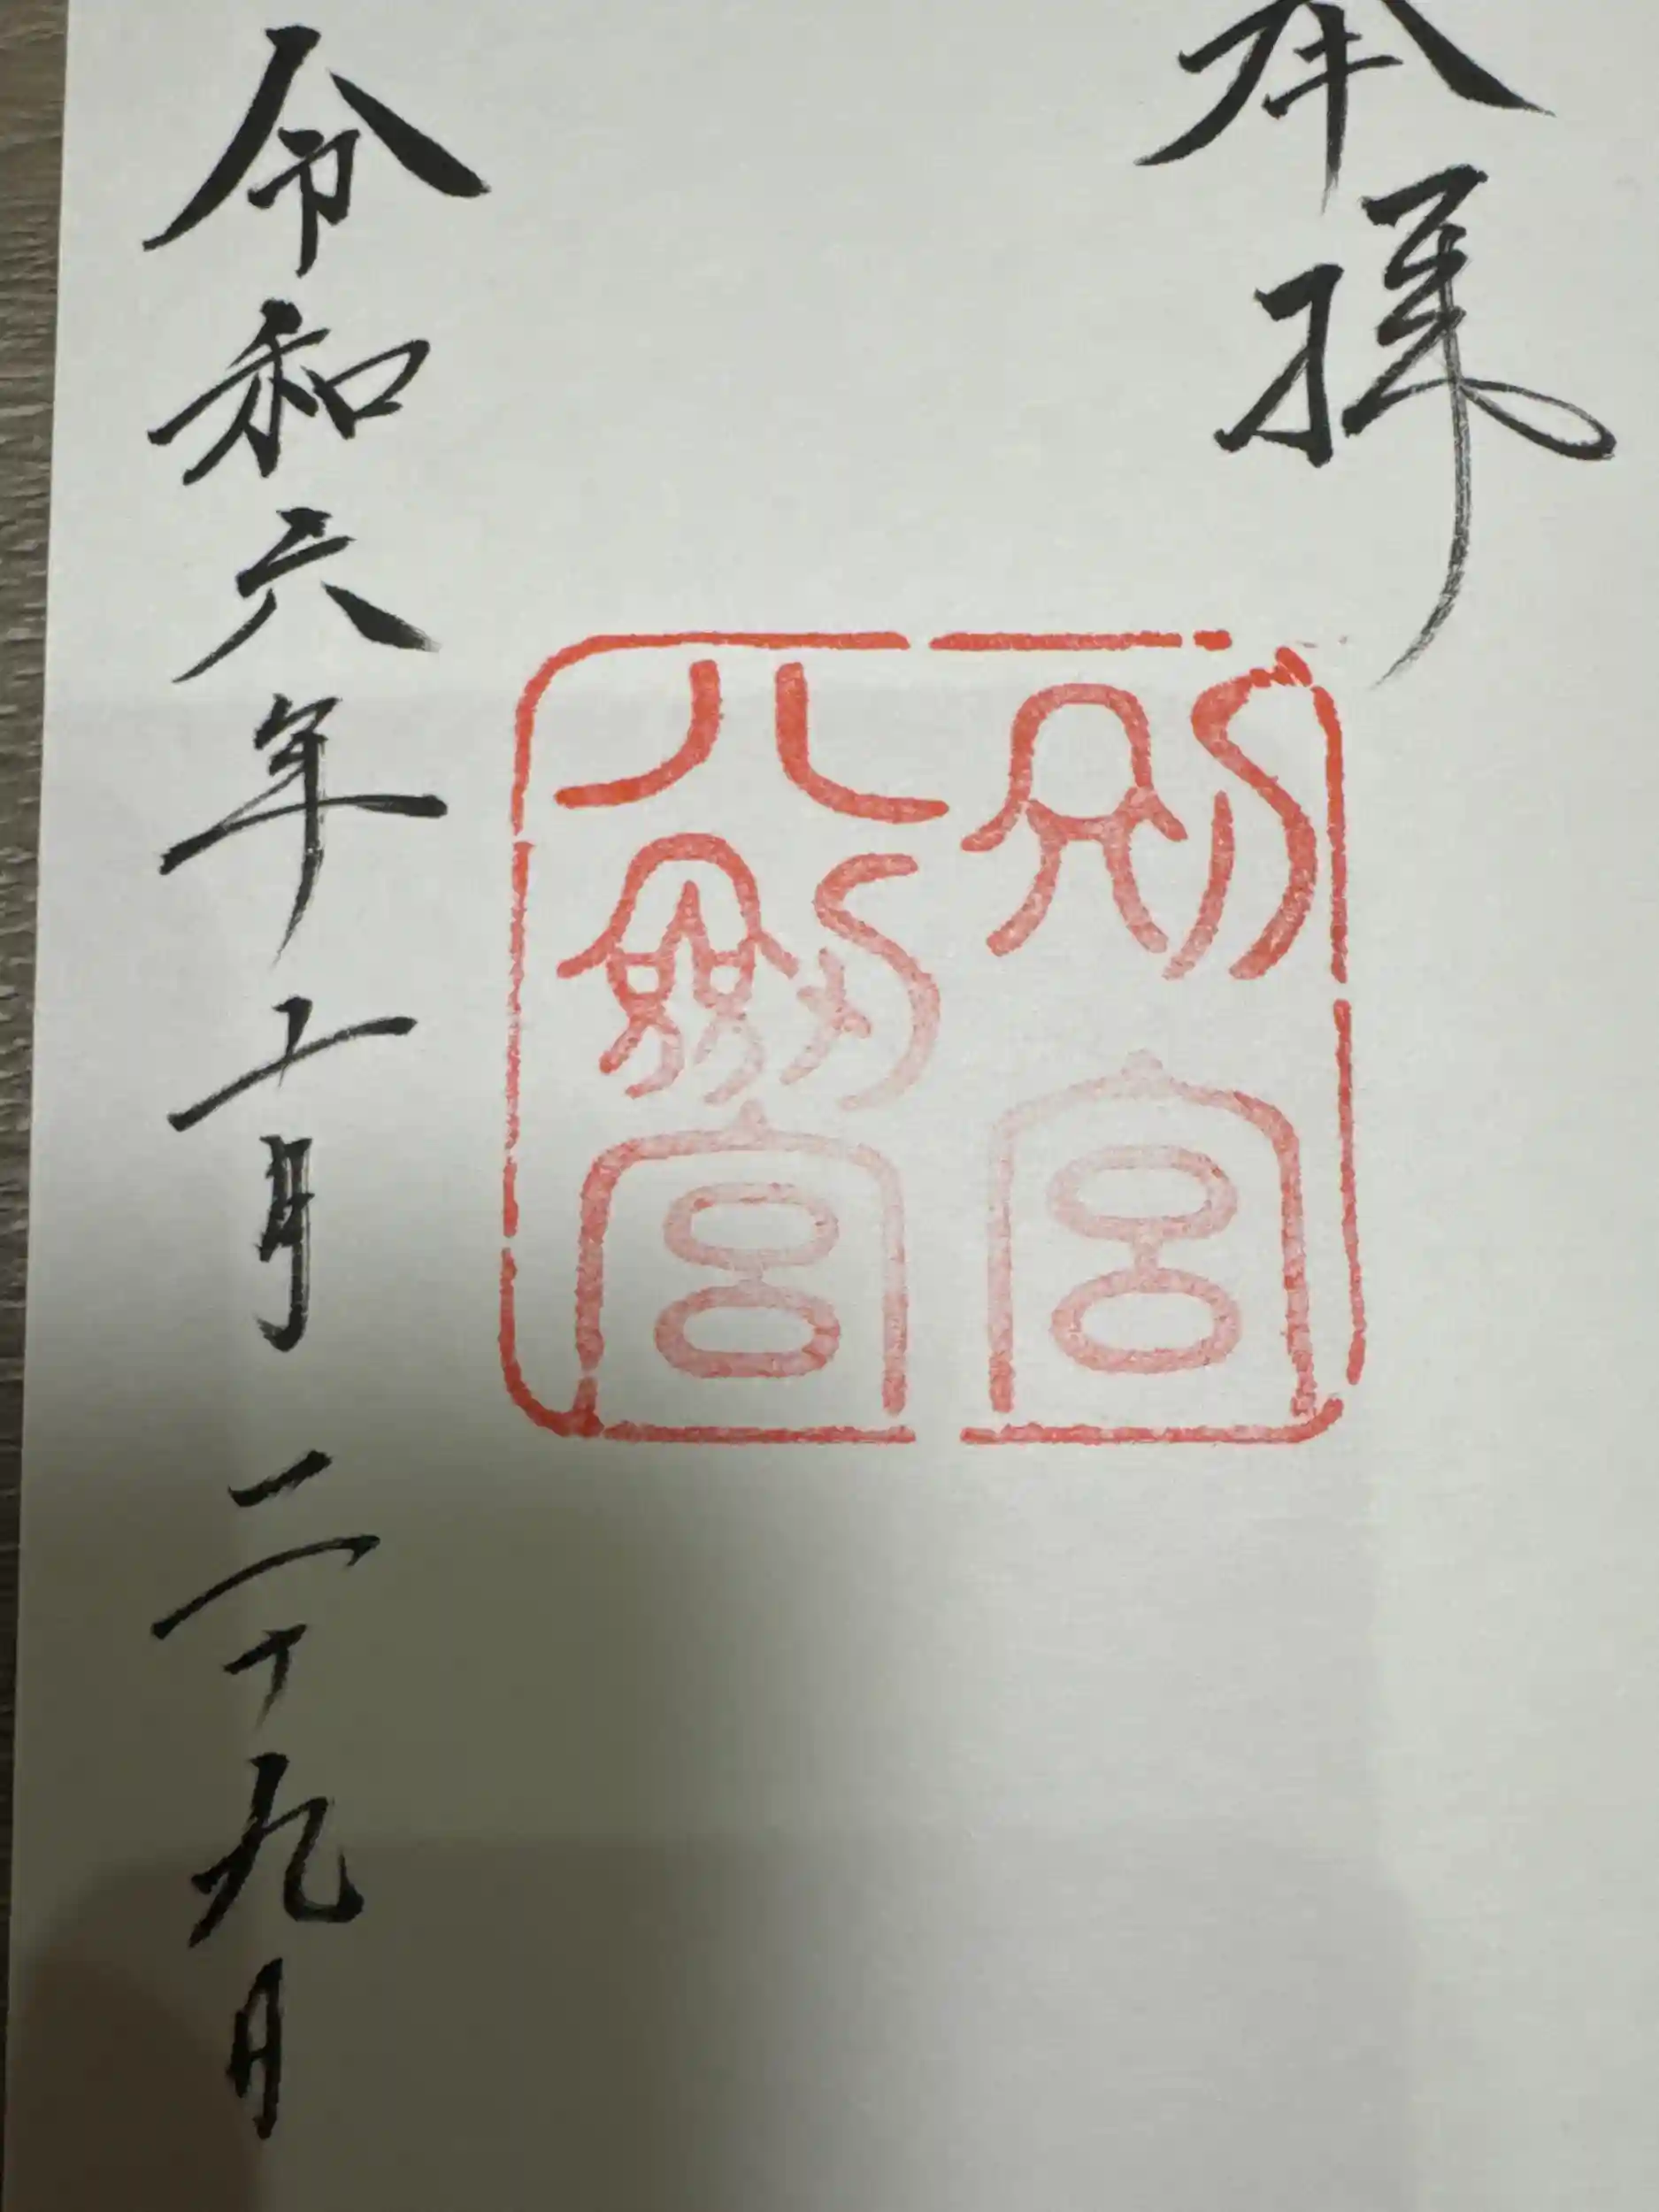 奉拝
別宮
八劔宮
令和六年十一月二十九日